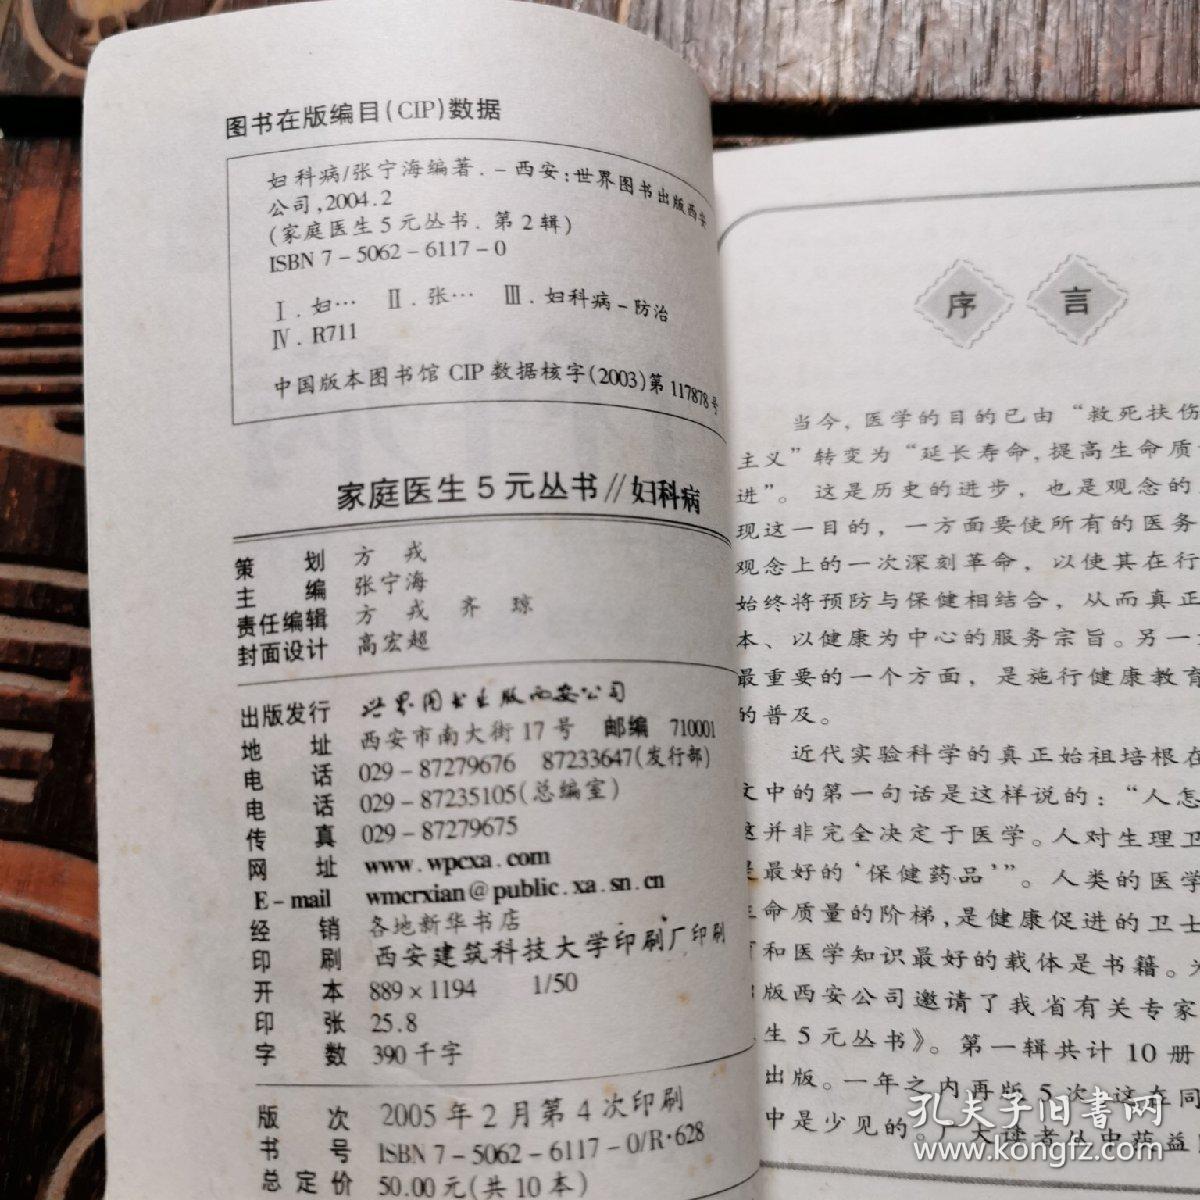 图书在版编目(CIP)数据
妇科病/张宁海编著.－西安:世界图书出版西安
公司,2004.2
(家庭医生5元丛书.第2辑)
ISBN 7－5062－6117－0
Ⅰ.妇… Ⅱ.张… Ⅲ.妇科病－防治
Ⅳ.R711
中国版本图书馆CIP数据核字(2003)第117878号
家庭医生5元丛书//妇科病
策 划 方 戎
主 编 张宁海
责任编辑 方 戎 齐 琼
封面设计 高宏超
出版发行 世界图书出版西安公司
地 址 西安市南大街17号 邮编 710001
电 话 029－87279676 87233647(发行部)
电 话 029－87235105(总编室)
传 真 029－87279675
网 址 www.wpcxa.com
E-mail wmcrxian@public.xa.sn.cn
经 销 各地新华书店
印 刷 西安建筑科技大学印刷厂印刷
开 本 889×1194 1/50
印 张 25.8
字 数 390千字
版 次 2005年2月第4次印刷
书 号 ISBN 7－5062－6117－0/R·628
总 定 价 50.00元(共10本)
序言
当今,医学的目的已由“救死扶伤
主义”转变为“延长寿命,提高生命质
进”。这是历史的进步，也是观念的
现这一目的，一方面要使所有的医务
观念上的一次深刻革命，以使其在行
始终将预防与保健相结合，从而真正
本、以健康为中心的服务宗旨。另一
最重要的一个方面，是施行健康教育
的普及。
近代实验科学的真正始祖培根在
文中的第一句话是这样说的：“人怎
这并非完全决定于医学。人对生理卫
是最好的‘保健药品’”。人类的医学
生命质量的阶梯,是健康促进的卫士
和医学知识最好的载体是书籍。
出版西安公司邀请了我省有关专家
生5元丛书》。第一辑共计10册
出版。一年之内再版5次,这在同
中是少见的。广大读者从中获益
孔夫子旧书网
www.kongfz.com